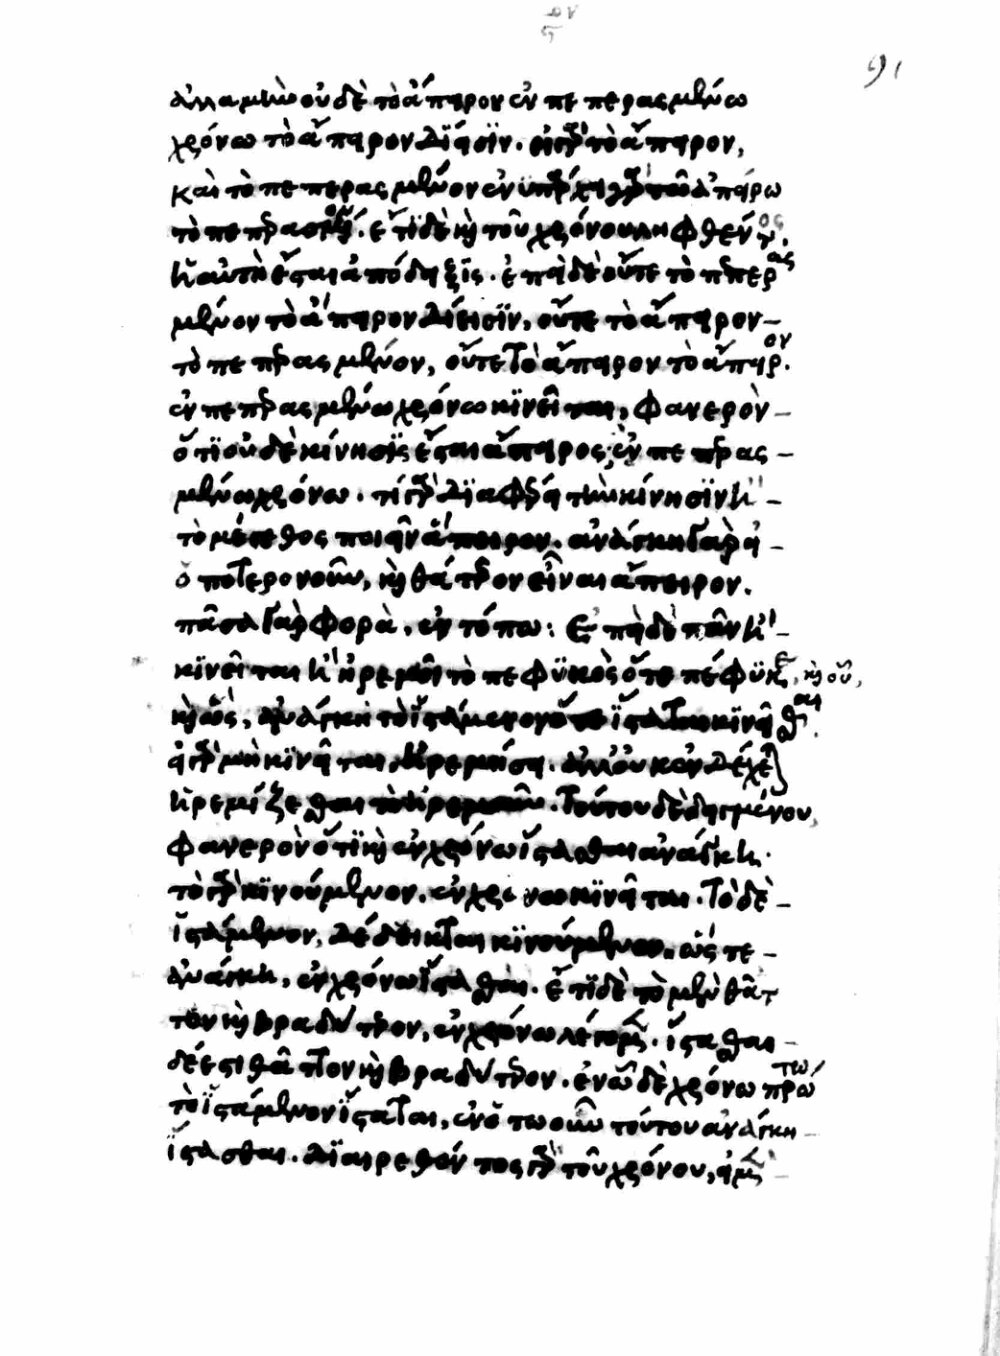 91
ἀλλὰ μὴν οὐδὲ τὸ ἄπειρον ἐν πεπερασμένω
χρόνω τὸ ἄπειρον δίεισϊν. εἰ γὰρ τὸ ἄπειρον,
καὶ τὸ πεπερασμένον ἐνϋπάρχει γὰρ τῶ ἀπείρω
τὸ πεπερασμένον. ἔτϊ δὲ καὶ τοῦ χρόνου ληφθέντος.
ἡ αὐτὴ ἔσται ἀπόδειξϊς. ἐπεὶ δὲ οὔτε τὸ πεπερας
μένον τὸ ἄπειρον δίεισϊν, οὔτε τὸ ἄπειρον
τὸ πεπερασμένον, οὔτε τὸ ἄπειρον τὸ ἄπειρον.
ἐν πεπερασμένω χρόνω κϊνεῖται, φανερὸν
ὅτϊ οὐδὲ κίνησϊς ἔσται ἄπειρος, ἐν πεπερας
μένω χρόνω. τί γὰρ δϊαφέρει τὴν κίνησϊν ἢ
τὸ μέγεθος ποιεῖν ἄπειρον. ἀνάγκη γὰρ εἰ
ὁποτερονοῦν, καὶ θάτερον εἶναι ἄπειρον.
πᾶσα γὰρ φορὰ, ἐν τόπω: Ἐπεὶ δὲ πᾶν ἢ
κϊνεῖται ἢ ἠρεμεῖ τὸ πεφϋκὸς ὅτε πέφϋκε, καὶ οὗ,
καὶ ὡς, ἀνάγκη τὸ ἱστάμενον ὅτε ἵσταται κϊνεῖσθαι.
εἰ γὰρ μὴ κϊνεῖται, ἠρεμήσει. ἀλλ' οὐκ ἐνδέχε
ἠρεμίζεσθαι τὸ ἠρεμοῦν. Τούτου δὲ δεδειγμένου,
φανερὸν ὅτϊ καὶ ἐν χρόνω ἵστασθαι ἀνάγκη.
τὸ γὰρ κϊνούμενον, ἐν χρόνω κϊνεῖται. Τὸ δὲ
ἱστάμενον, δέδεικται κϊνούμενον. ὥστε
ἀνάγκη, ἐν χρόνω ἵστασθαι. ἔτϊ δὲ τὸ μὲν θᾶτ
τον καὶ βραδύτερον, ἐν χρόνω λέγομεν. ἵστασθαι
δέ ἐστι θᾶττον καὶ βραδύτερον. ἐν ᾧ δὲ χρόνω πρώτω
τὸ ἱστάμενον ἵσταται, ἐν ὁτωοῦν τούτου ἀνάγκη
ἵστασθαι. δϊαιρεθέντος γὰρ τοῦ χρόνου, εἰ μὲν